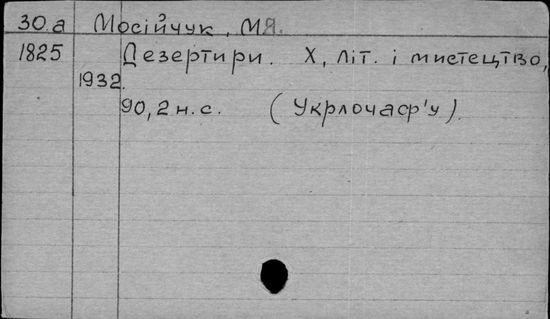 30.а Мосійчук, М.Я.
1825 Дезертири. Х, літ. і мистецтво,
1932.
90, 2 н. с. (Укрлочаф'у).